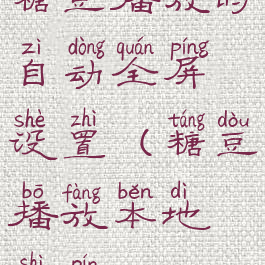 糖豆播放的
zì dòng quán píng
自动全屏
shè zhì táng dòu
设置（糖豆
bō fàng běn dì
播放本地
shì pín